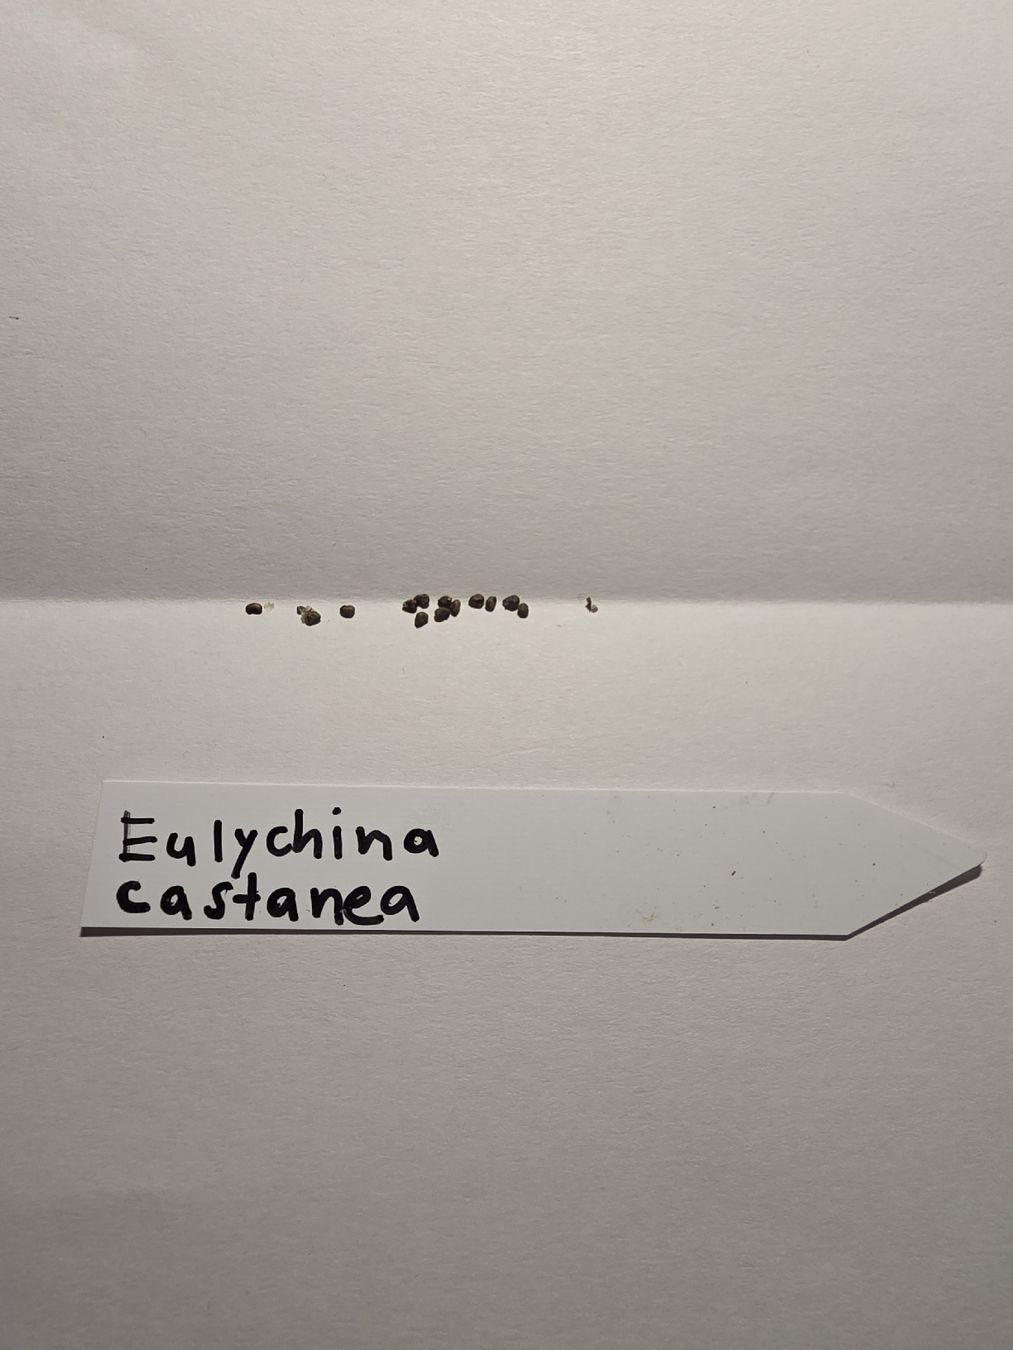 Eulychina
castanea